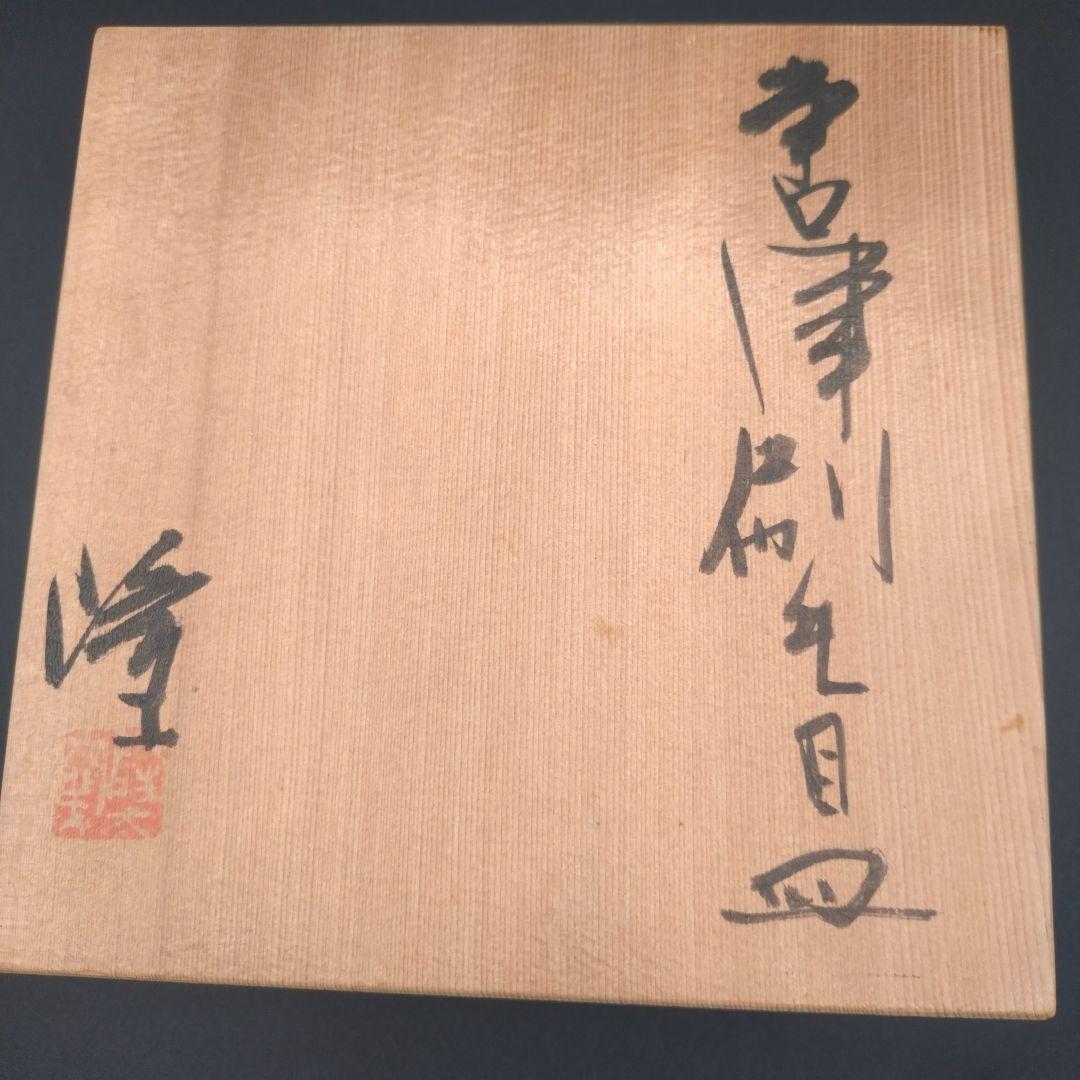 唐津刷毛目皿
隆